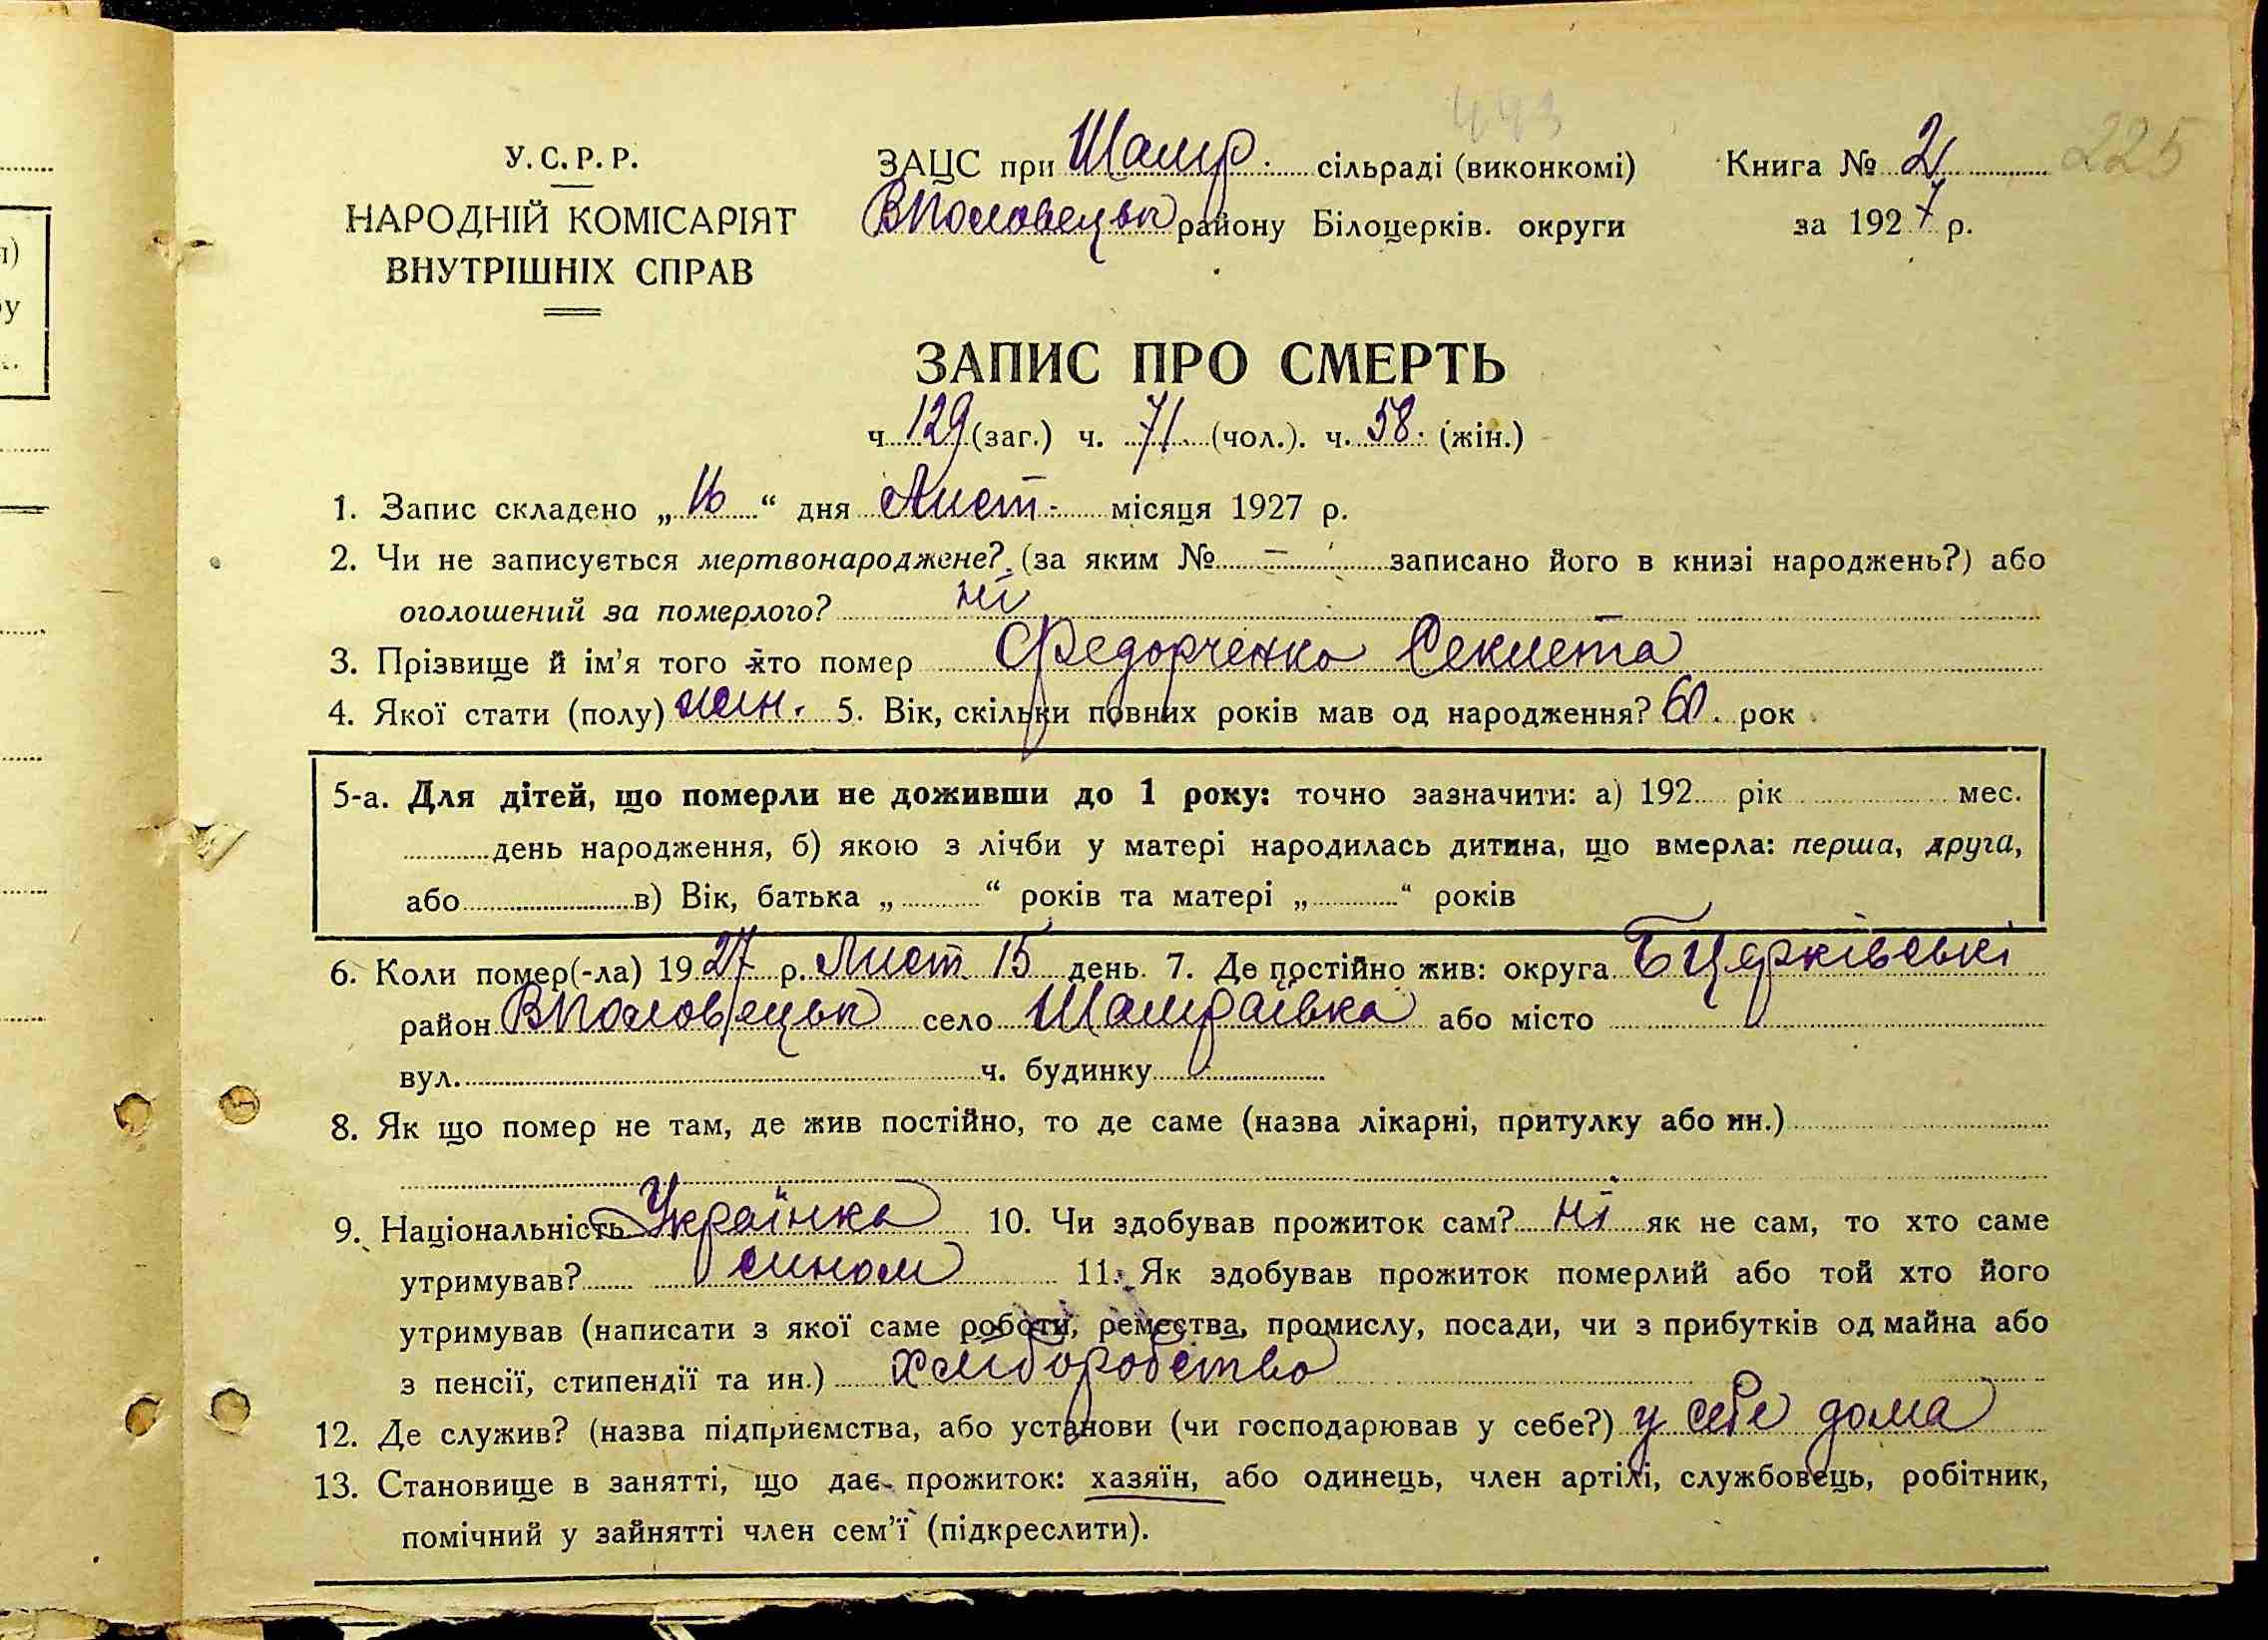 443
225
У. С. Р. Р.
НАРОДНІЙ КОМІСАРІЯТ
ВНУТРІШНІХ СПРАВ
ЗАЦС при Шамр. сільраді (виконкомі)
ВПоловецьк району Білоцерків. округи
Книга № 2
за 1927 р.
ЗАПИС ПРО СМЕРТЬ
ч 129 (заг.) ч. 71. (чол.). ч. 58. (жін.)
1. Запис складено „16“ дня Лист. місяця 1927 р.
2. Чи не записується мертвонароджене? (за яким № – записано його в книзі народжень?) або
оголошений за померлого? ні
3. Прізвище й ім’я того хто помер Федорченко Секлета
4. Якої стати (полу) жін. 5. Вік, скільки повних років мав од народження? 60. рок
5-а. Для дітей, що померли не доживши до 1 року: точно зазначити: а) 192 рік мес.
день народження, б) якою з лічби у матері народилась дитина, що вмерла: перша, друга,
або в) Вік, батька „ “ років та матері „ “ років
6. Коли помер(-ла) 1927 р. Лист 15 день. 7. Де постійно жив: округа БЦерківські
район ВПоловецьк село Шамраївка або місто
вул. ч. будинку
8. Як що помер не там, де жив постійно, то де саме (назва лікарні, притулку або ин.)
9. Національність Українка 10. Чи здобував прожиток сам? ні як не сам, то хто саме
утримував? сином 11. Як здобував прожиток померлий або той хто його
утримував (написати з якої саме роботи, ремества, промислу, посади, чи з прибутків од майна або
з пенсії, стипендії та ин.) хліборобство
12. Де служив? (назва підприємства, або установи (чи господарював у себе?) у себе дома
13. Становище в занятті, що дає прожиток: хазяїн, або одинець, член артілі, службовець, робітник,
помічний у зайнятті член сем’ї (підкреслити).